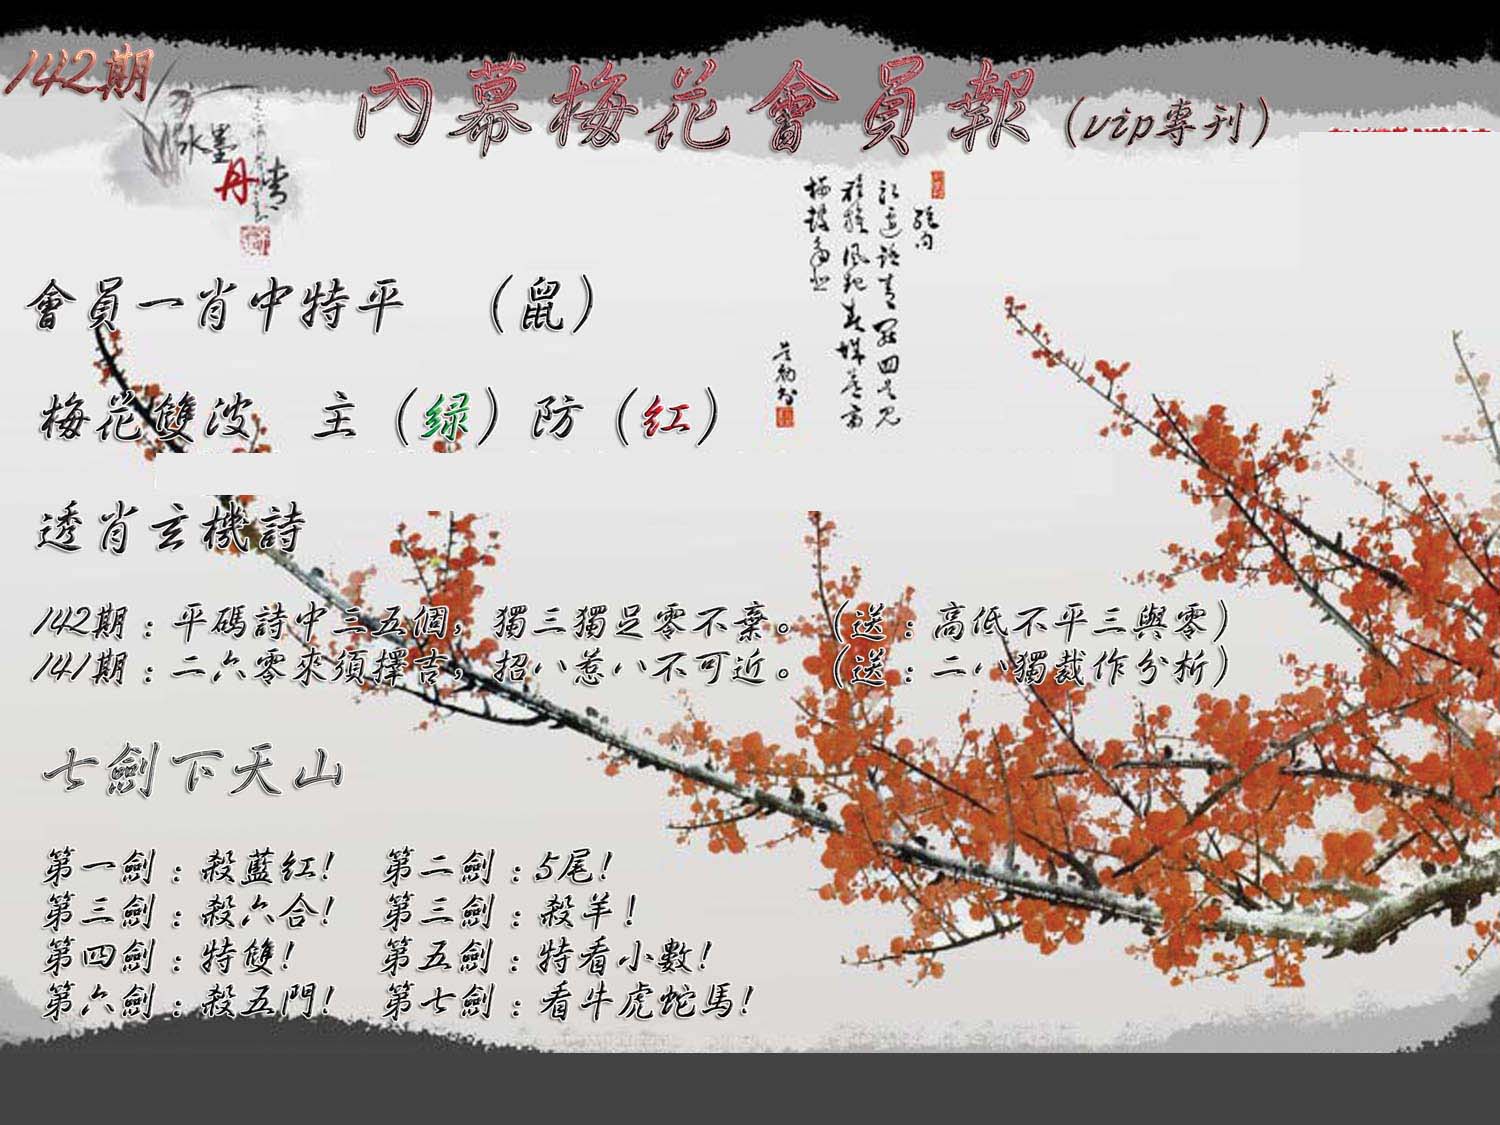 142期
內幕梅花會員報（vip專刊）
水墨
丹青
會員一肖中特平　（鼠）
梅花雙波　主（绿）防（红）
透肖玄機詩
142期：平碼詩中三五個，獨三獨足零不棄。（送：高低不平三與零）
141期：二六零來須擇吉，招八惹八不可近。（送：二八獨裁作分析）
七劍下天山
第一劍：殺藍紅！　第二劍：5尾！
第三劍：殺六合！　第三劍：殺羊！
第四劍：特雙！　第五劍：特看小數！
第六劍：殺五門！　第七劍：看牛虎蛇馬！